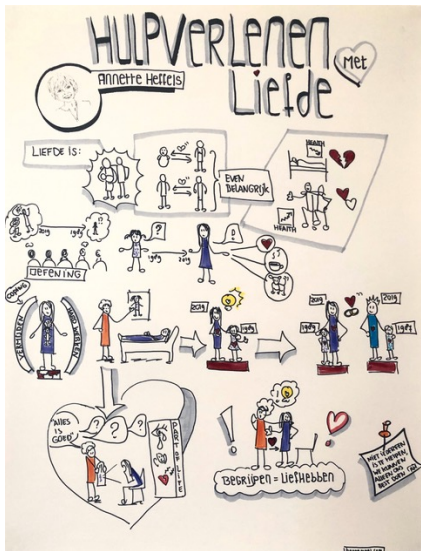 HULPVERLENEN
Met
Liefde
ANNETTE HEFFELS
LIEFDE IS:
EVEN
BELANGRIJK
HEALTH
HEALTH
2019
1989
OEFENING
?
!
1989
2019
COPING
VERMIJDEN
2019
1989
2019
2019
1989
1989
"ALLES
IS
GOED"
?
?
?
PART OF LIFE
!
BEGRIJPEN = LIEFHEBBEN
NIET IEDEREEN
IS TE HELPEN,
WE KUNNEN
ALLEEN ONS
BEST DOEN